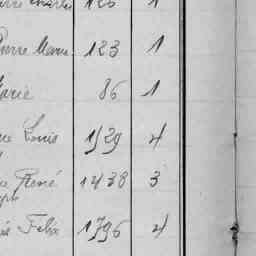 126 1
Pierre Marie 123 1
Marie 86 1
Louis 1529 4
René 1438 3
Felix 1796 4